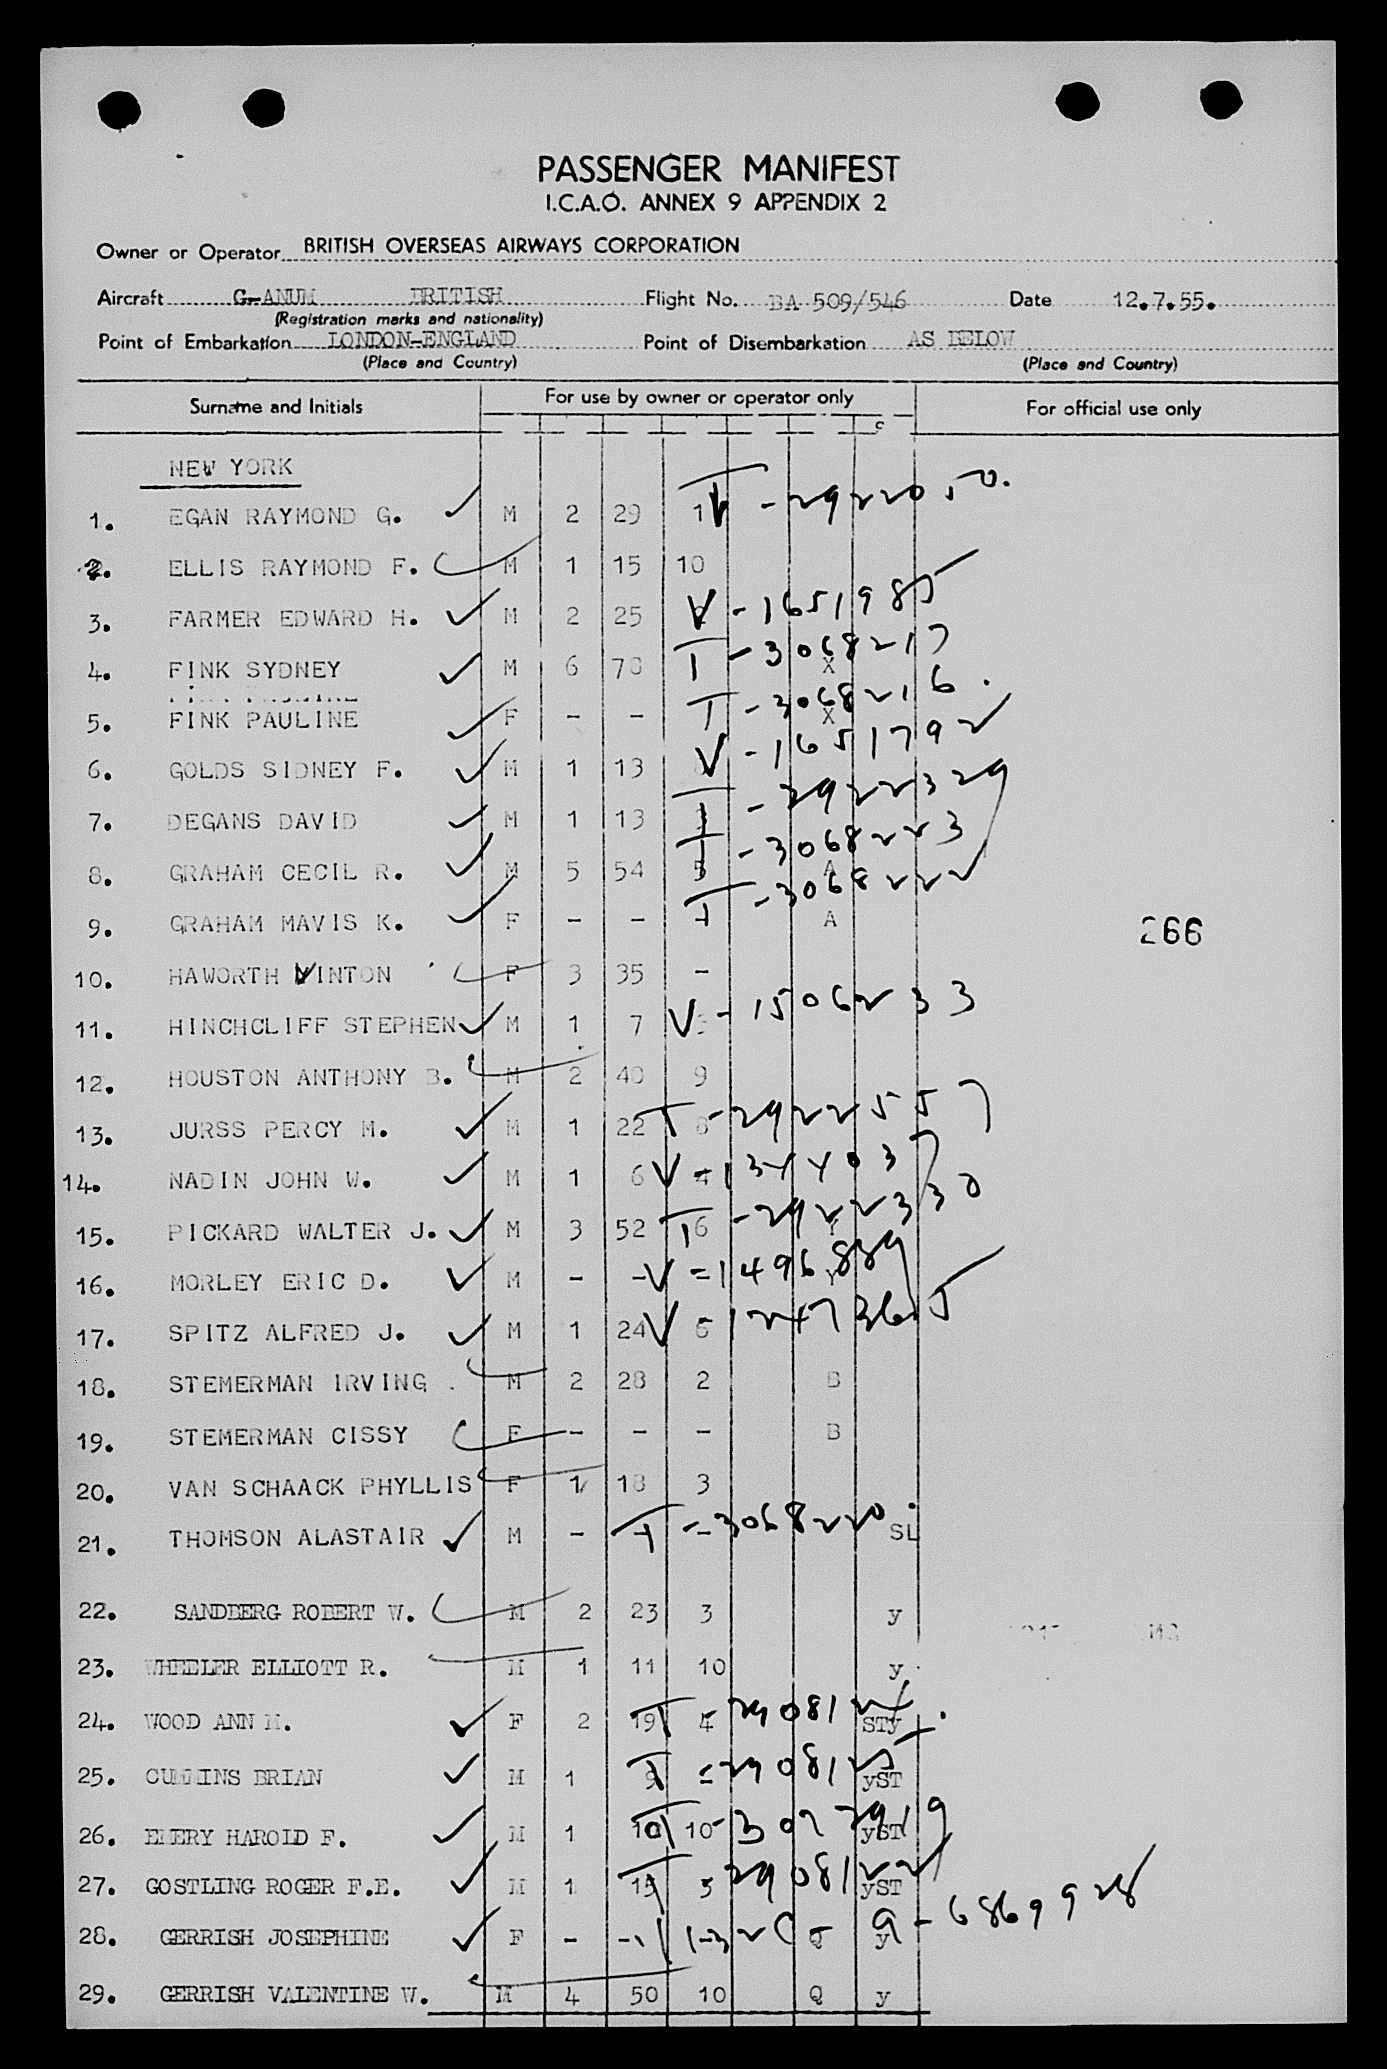 PASSENGER MANIFEST
I.C.A.O. ANNEX 9 APPENDIX 2
Owner or Operator BRITISH OVERSEAS AIRWAYS CORPORATION
Aircraft G-ANUM BRITISH Flight No. BA 509/546 Date 12.7.55.
(Registration marks and nationality)
Point of Embarkation LONDON-ENGLAND Point of Disembarkation AS BELOW
(Place and Country) (Place and Country)
Surname and Initials For use by owner or operator only For official use only
NEW YORK
1. EGAN RAYMOND G. M 2 29 1 T - 2922050.
2. ELLIS RAYMOND F. M 1 15 10
3. FARMER EDWARD H. M 2 25 V - 1651985
4. FINK SYDNEY M 6 78 T - 3068217 X
5. FINK PAULINE F - - T - 3068216. X
6. GOLDS SIDNEY F. M 1 13 V - 1651792
7. DEGANS DAVID M 1 13 T - 2922329
8. GRAHAM CECIL R. M 5 54 5 T - 3068223 A
9. GRAHAM MAVIS K. F - - T - 3068222 A
266
10. HAWORTH VINTON F 3 35 -
11. HINCHCLIFF STEPHEN M 1 7 V - 1506233
12. HOUSTON ANTHONY B. M 2 40 9
13. JURSS PERCY M. M 1 22 T - 2922557
14. NADIN JOHN W. M 1 6 4 V - 1344037
15. PICKARD WALTER J. M 3 52 6 T - 2922330 Y
16. MORLEY ERIC D. M - - V - 1496889 Y
17. SPITZ ALFRED J. M 1 24 6 V - 1247365
18. STEMERMAN IRVING M 2 28 2 B
19. STEMERMAN CISSY F - - - B
20. VAN SCHAACK PHYLLIS F 1 18 3
21. THOMSON ALASTAIR M - T - 3068220 SL
22. SANDBERG ROBERT W. M 2 23 3 y
23. WHEELER ELLIOTT R. M 1 11 10 y
24. WOOD ANN M. F 2 19 4 T - 2908124. STy
25. CUMMINS BRIAN M 1 9 T - 2908125 yST
26. EMERY HAROLD F. M 1 10 10 T - 3027919 yST
27. GOSTLING ROGER F.E. M 1 15 5 T 2908122 yST
28. GERRISH JOSEPHINE F - - Q y 9 - 6869928
29. GERRISH VALENTINE W. M 4 50 10 Q y